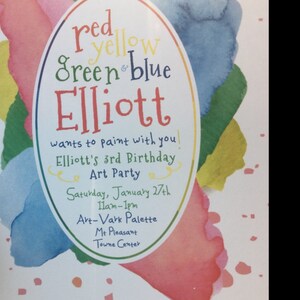 red
yellow
green & blue
Elliott
wants to paint with you!
Elliott's 3rd Birthday
Art Party
Saturday, January 27th
11am-1pm
Art-Vark Palette
Mt Pleasant
Towne Center